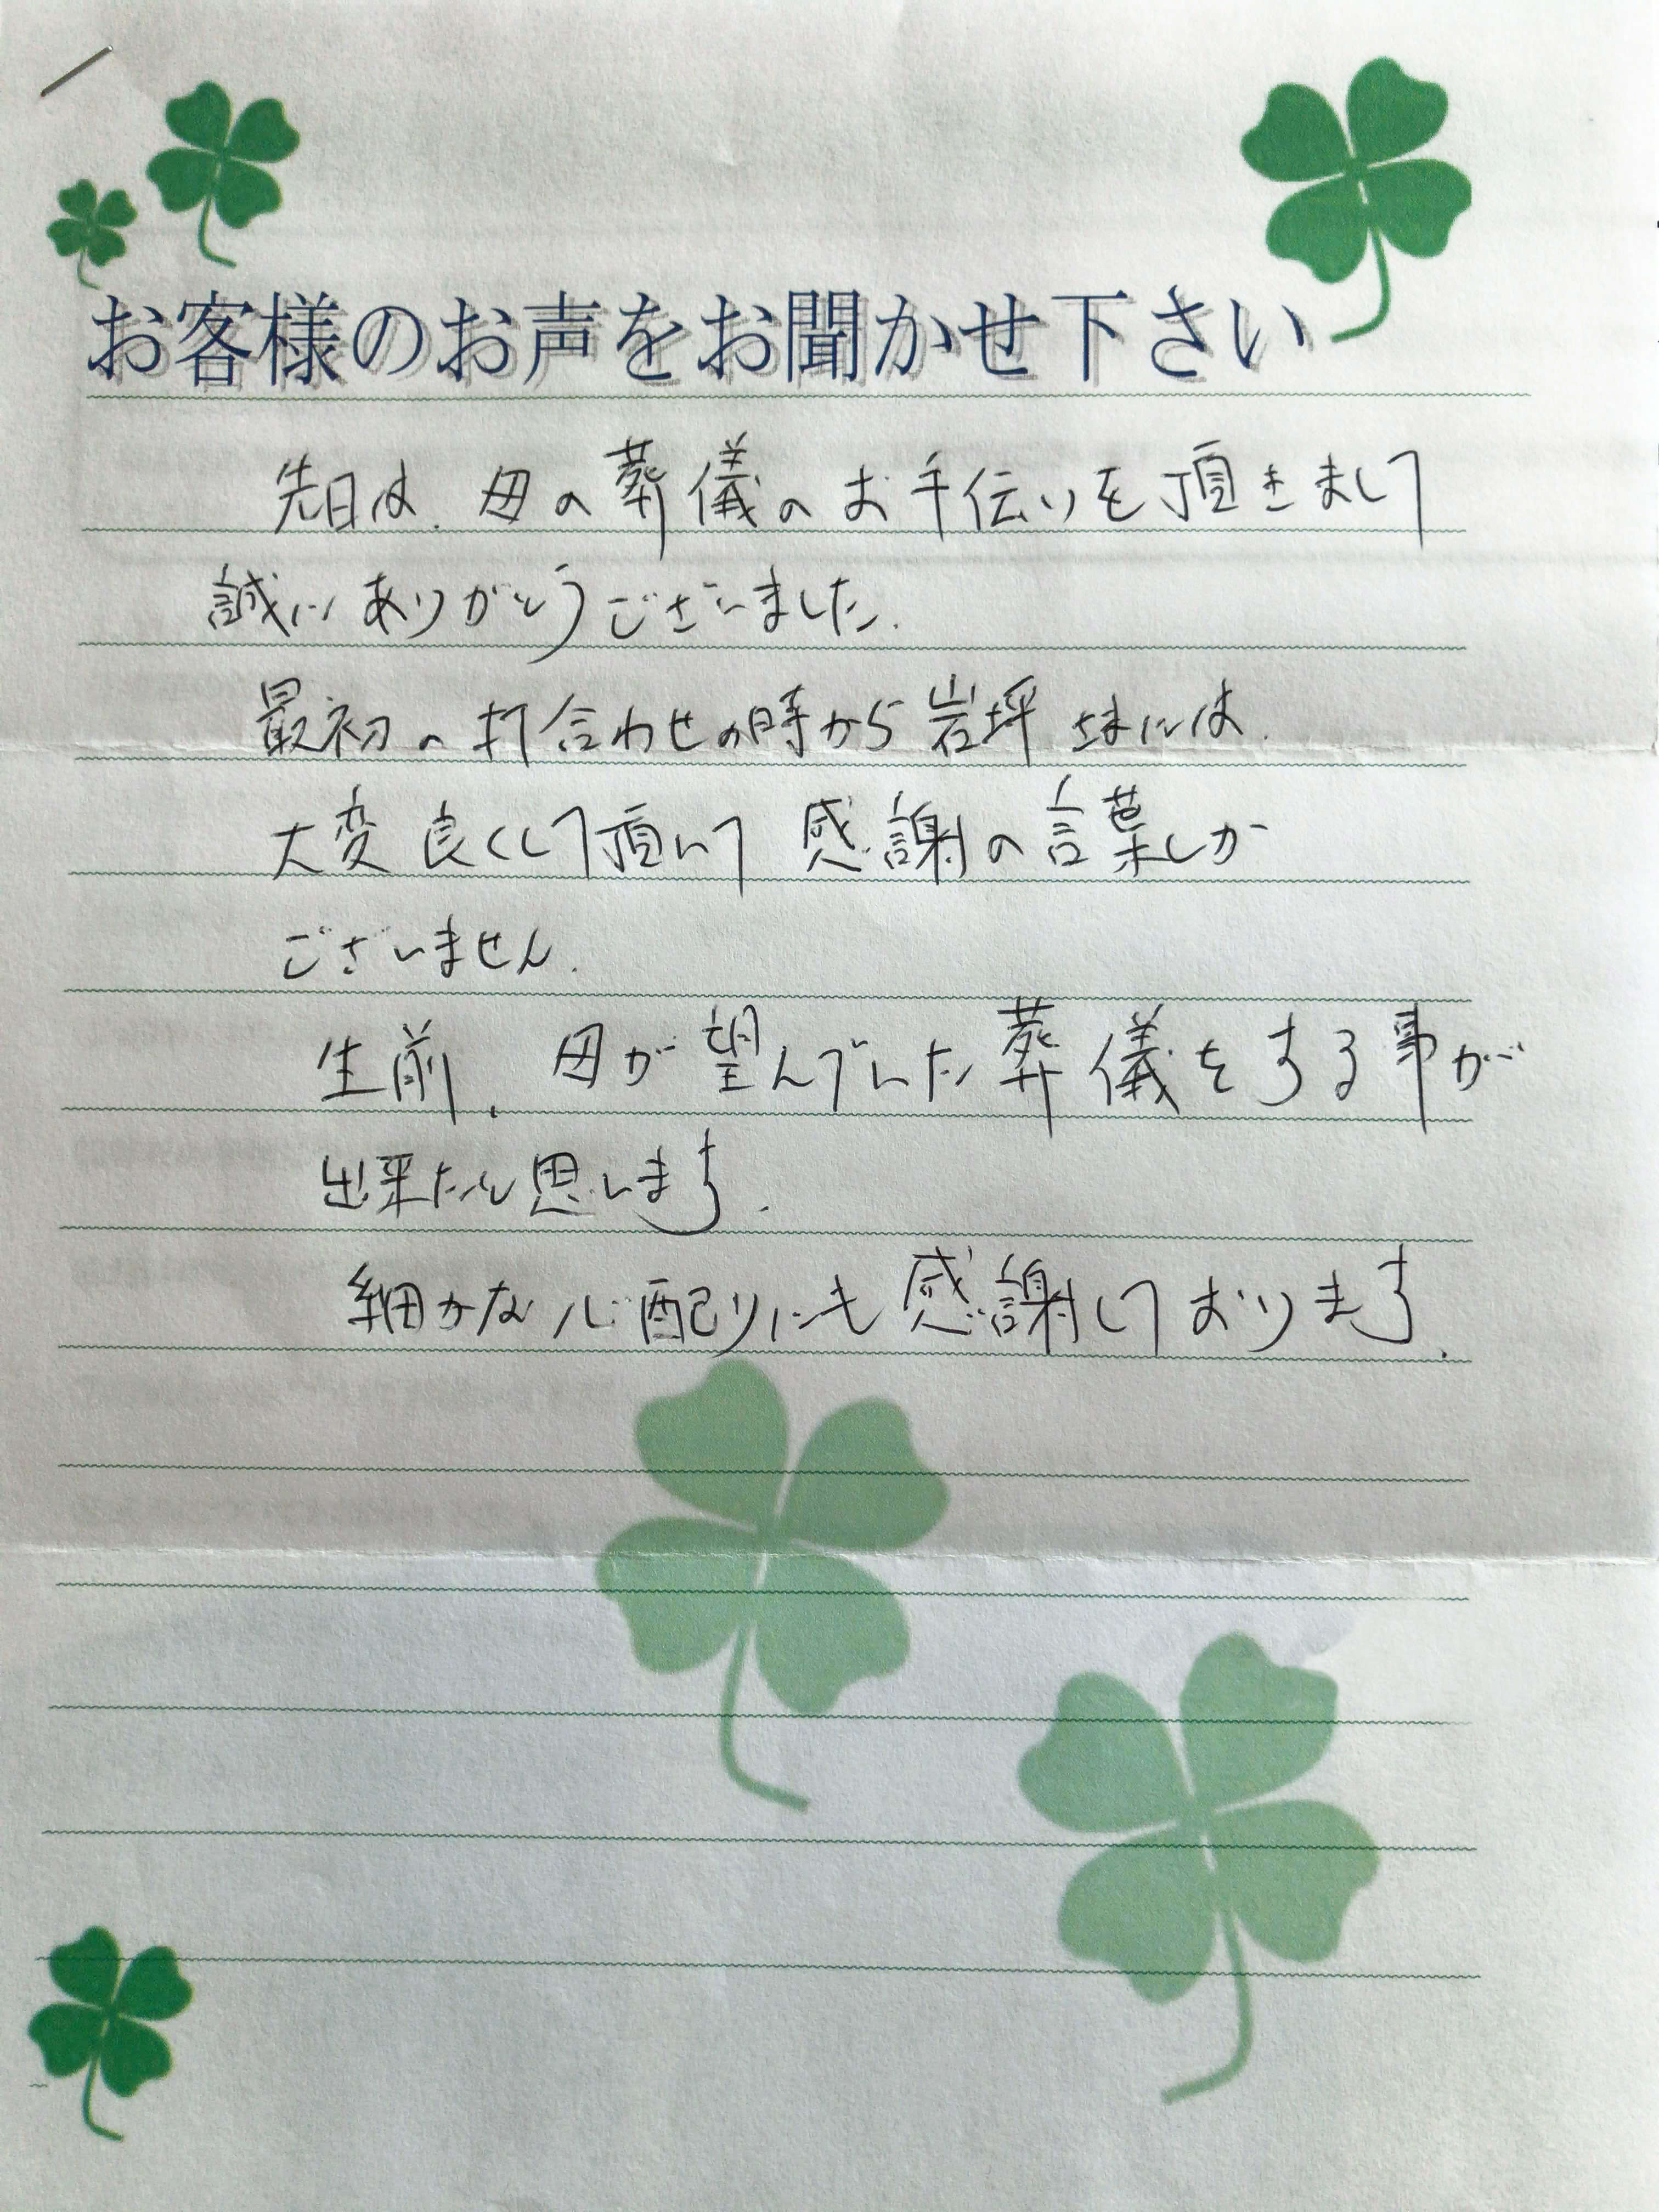 お客様のお声をお聞かせ下さい
先日は、母の葬儀のお手伝いを頂きまして
誠にありがとうございました。
最初の打合わせの時から岩坪さまには、
大変良くして頂いて感謝の言葉しか
ございません。
生前、母が望んでいた葬儀をする事が
出来たと思います。
細かな心配りにも感謝しております。